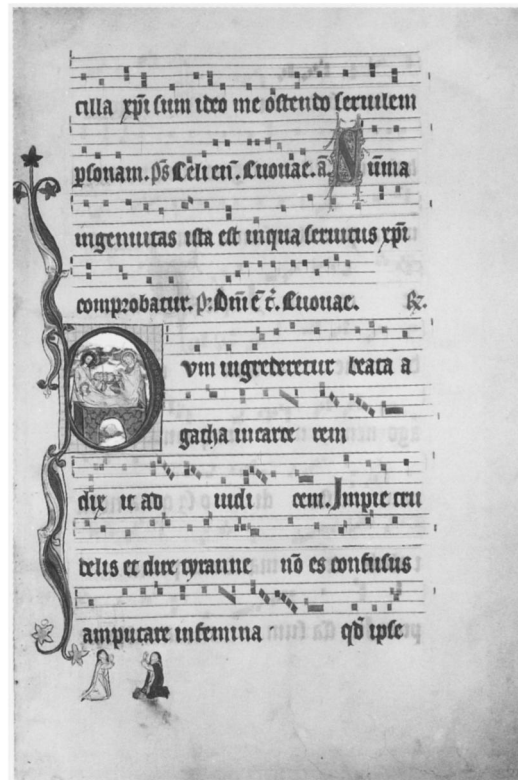 cilla xpi sum ideo me ostendo seruilem
psonam. ps Celi en. Euouae. a. Sūma
ingenuitas ista est inqua seruitus xpi
comprobatur. p. Dni ē t. Euouae. R.
Dvm ingrederetur beata a
gatha in carce rem
dix it ad iudi cem. Impie cru
delis et dire tyranne nō es confusus
amputare infemina qd ipse